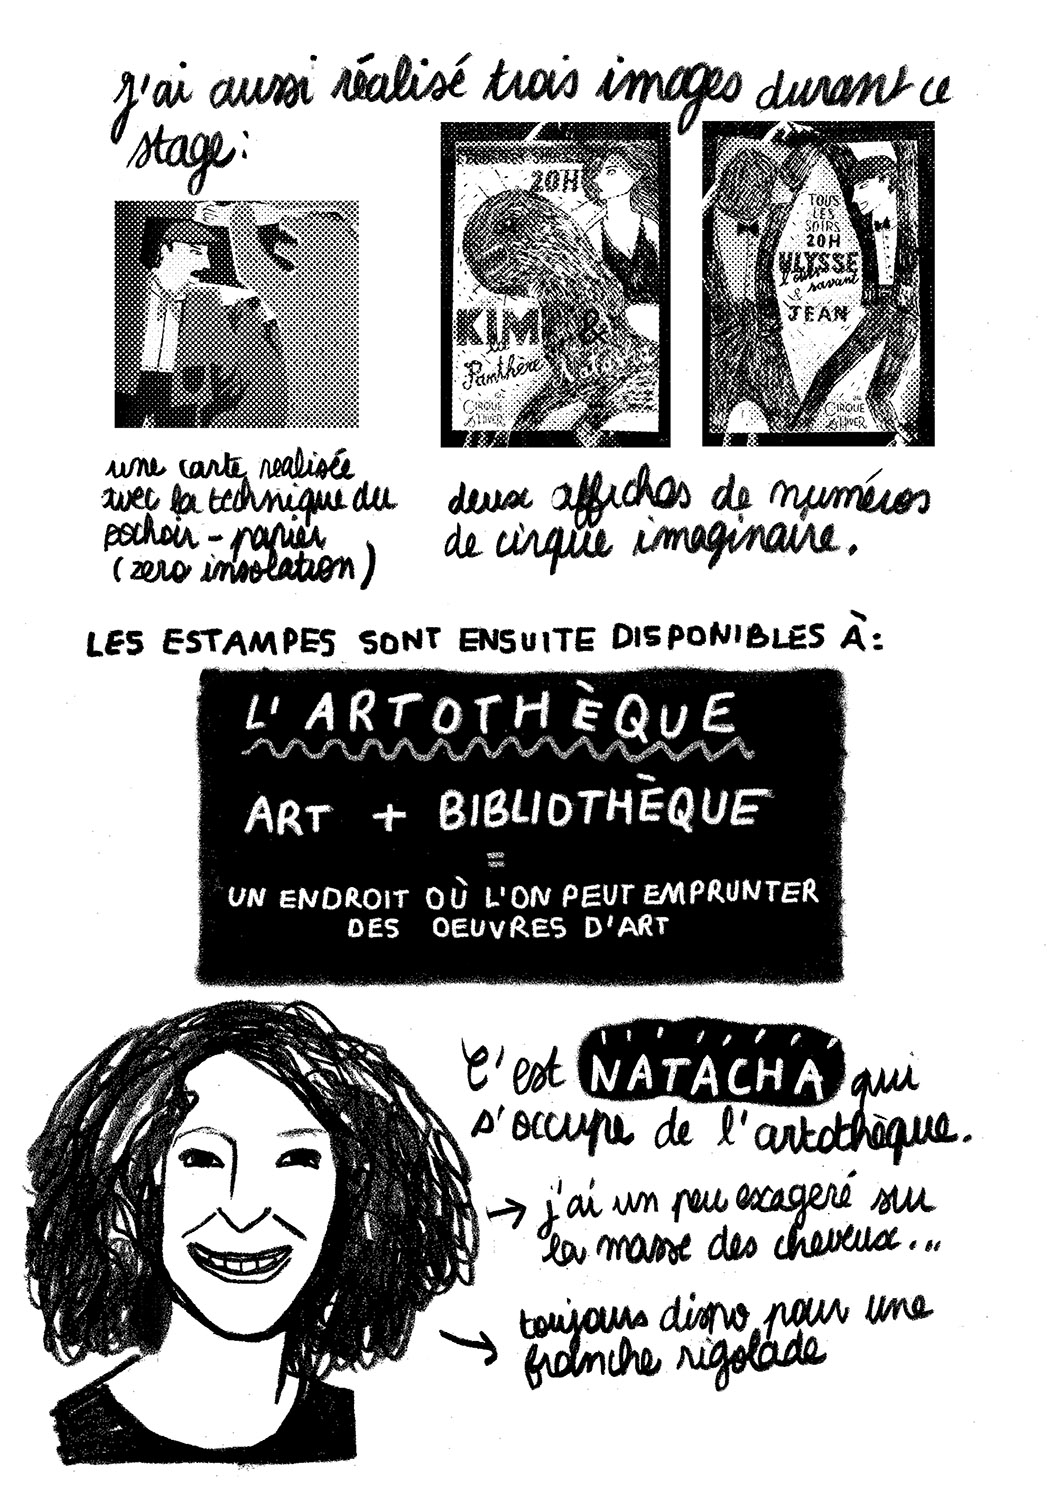 J'ai aussi réalisé trois images durant ce
stage:
20H
KIM &
la
Panthère
au
CIRQUE
D'HIVER
TOUS
LES
SOIRS
20H
ULYSSE
l'ours
savant
&
JEAN
au
CIRQUE
D'HIVER
une carte realisée
avec la technique du
pochoir - papier
(zero insolation)
deux affiches de numéros
de cirque imaginaire.
LES ESTAMPES SONT ENSUITE DISPONIBLES À:
L'ARTOTHÈQUE
ART + BIBLIOTHÈQUE
=
UN ENDROIT OÙ L'ON PEUT EMPRUNTER
DES OEUVRES D'ART
C'est NATACHA qui
s'occupe de l'artothèque.
→ j'ai un peu exageré sur
la masse des cheveux...
→ toujours dispo pour une
franche rigolade